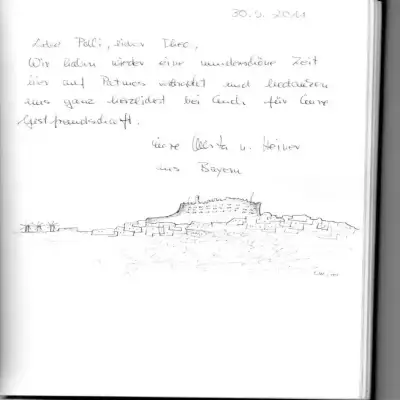 30.9. 2011
Liebe Poli, lieber Theo,
Wir haben wieder eine wunderschöne Zeit
hier auf Patmos verbracht und bedanken
uns ganz herzlichst bei Euch für Eure
Gastfreundschaft.
Eure u. Heiner
aus Bayern